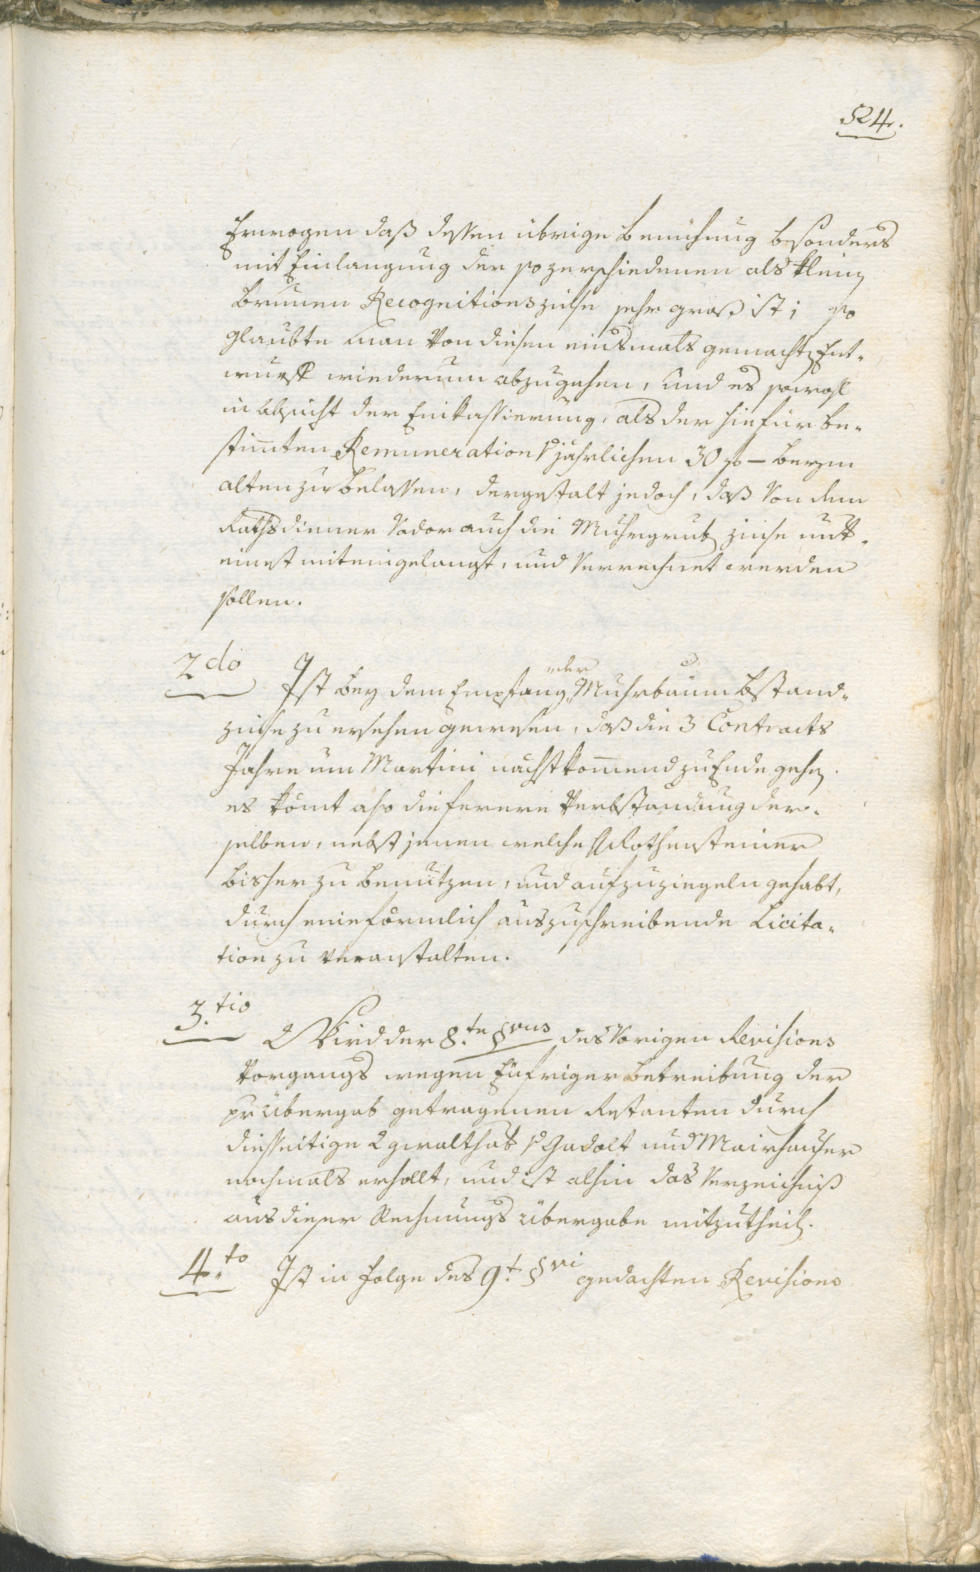 524.
Erwogen daß dessen übrige bemühung besonders
mit Einlangung der so zerschiedenen als klein
brunen Recognitionszinse sehr groß ist; so
glaubte man von diesen einsmals gemacht Ent-
wurff wiederum abzugehen, und es sowohl
in absicht der Einkassierung, als der hiefür be-
stimten Remuneration jährlichen 30 f – beym
alten zu belassen, dergestalt jedoch, daß von dem
Rathsdiener Vador auch die Muhrgrub zinse mit-
einst miteingelangt, und verrechnet werden
sollen.
2do Ist bey dem Empfang der Muhrbaum bstand-
zinse zu ersehen gewesen, daß die 3 Contracts
Jahre um Martini nächstkomend zu Ende gehen.
es kömt also die fernere Verbstandung der-
selben, nebst jenen welche Rothensteiner
bisher zu benutzen, und aufzuziegeln gehabt,
durch eine förmlich auszuschreibende Licita-
tion zu veranstalten.
3.tio Wird der 8.te §vus des vorigen Revisions
Vorgangs wegen Eyfriger betreibung der
pr übergab getragenen Restanten durch
diesseitige gwalthab Gadolt und Mairhauser
nochmals erhollt, und ist alhin das Verzeichniß
aus dieser Rechnungs übergabe mitzutheilen.
4.to Ist in folge des 9.t §vi gedachten Revisions